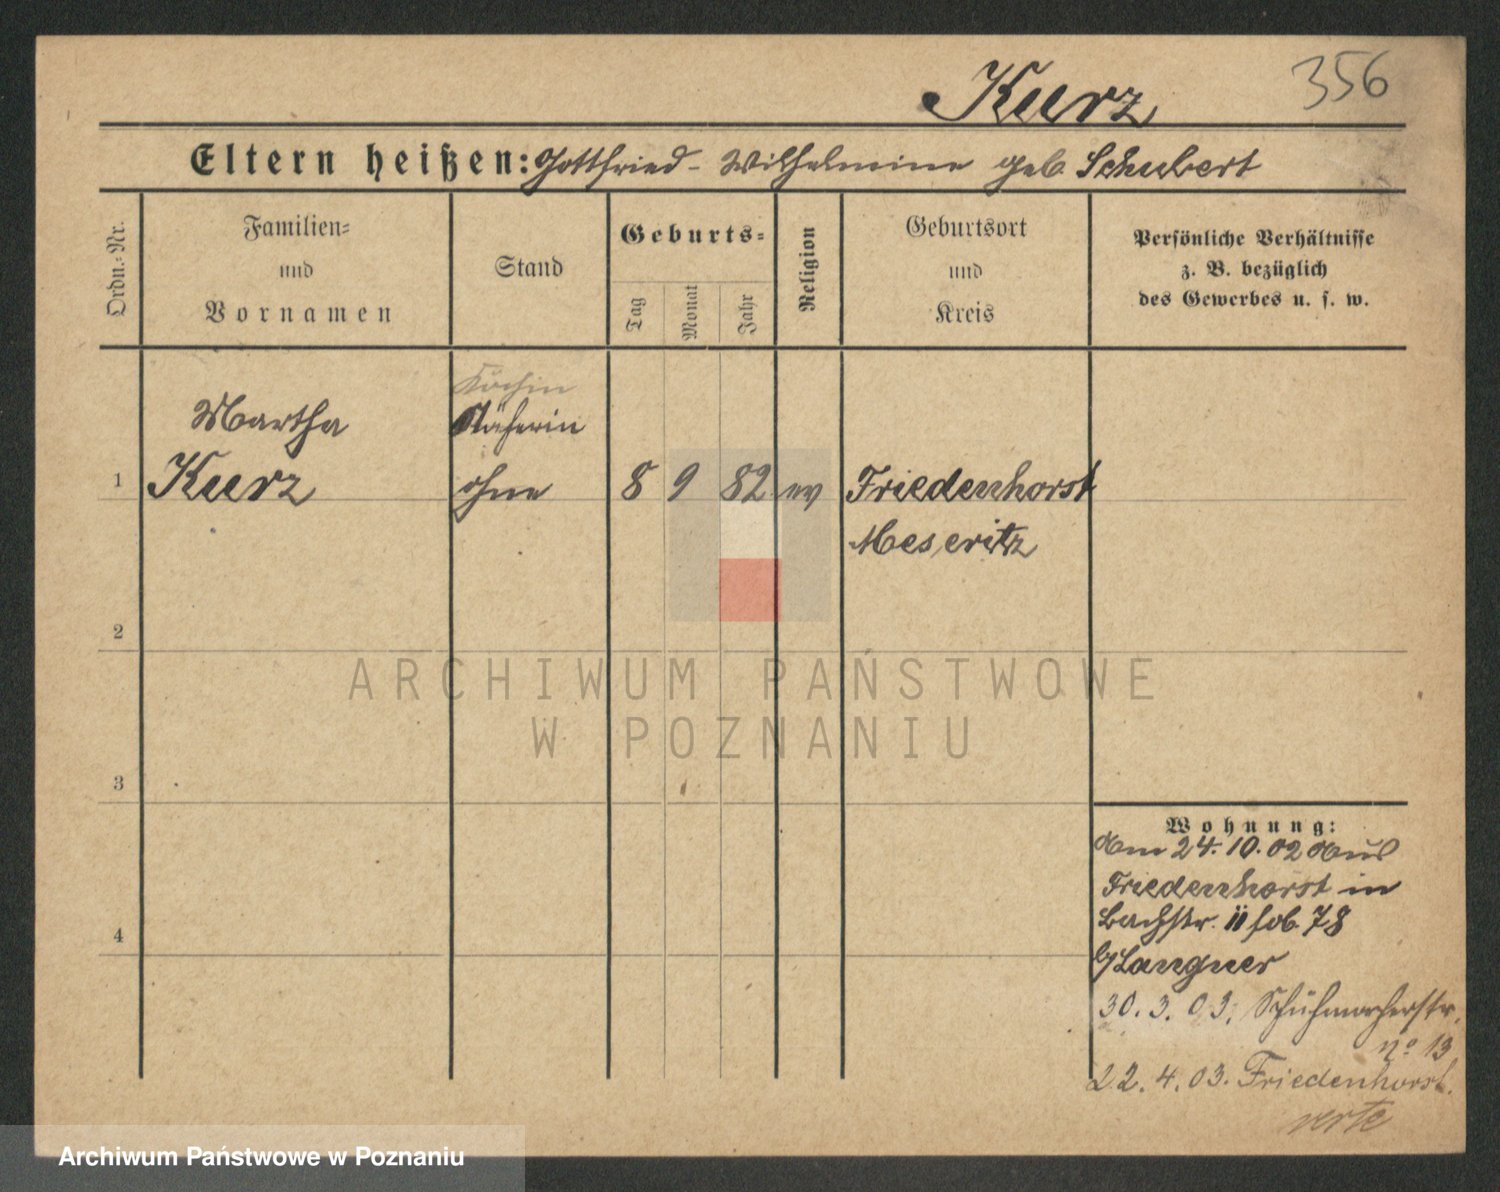 356
Kurz
Eltern heißen: Gottfried - Wilhelmine geb. Schubert
Ordn.-Nr.
Familien-
und
Vornamen
Stand
Geburts-
Tag
Monat
Jahr
Religion
Geburtsort
und
Kreis
Persönliche Verhältnisse
z. B. bezüglich
des Gewerbes u. s. w.
Köchin
Martha
Näherin
1 Kurz ohne 8 9 82 ev Friedenhorst
Meseritz
2
3
4
ARCHIWUM PAŃSTWOWE
W POZNANIU
Wohnung:
Am 24.10.02 aus
Friedenhorst in
Bachstr. 78
Langner
30. 3. 03. Schuhmacherstr.
No 13
22. 4. 03. Friedenhorst.
verte
Archiwum Państwowe w Poznaniu